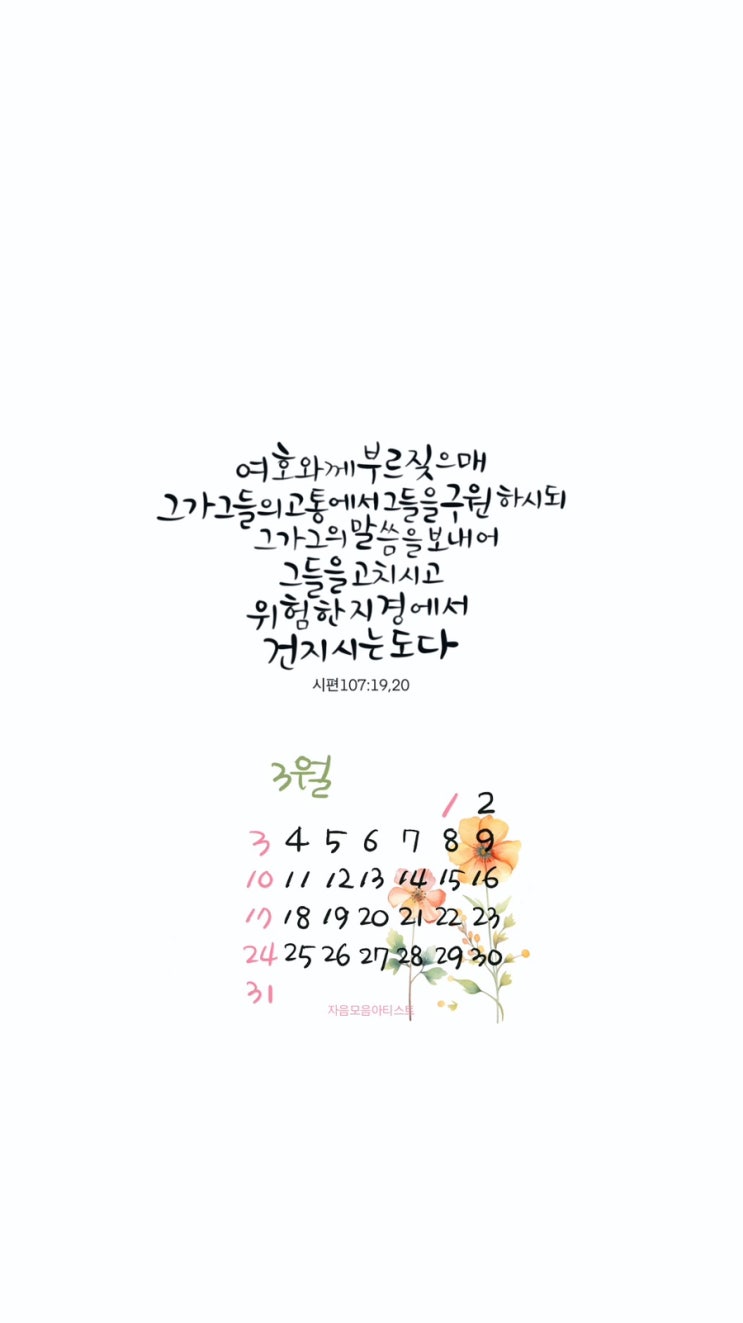 여호와께 부르짖으매
그가 그들의 고통에서 그들을 구원 하시되
그가 그의 말씀을 보내어
그들을 고치시고
위험한 지경에서
건지시는도다
시편107:19,20
3월
1 2
3 4 5 6 7 8 9
10 11 12 13 14 15 16
17 18 19 20 21 22 23
24 25 26 27 28 29 30
31
자음모음아티스트